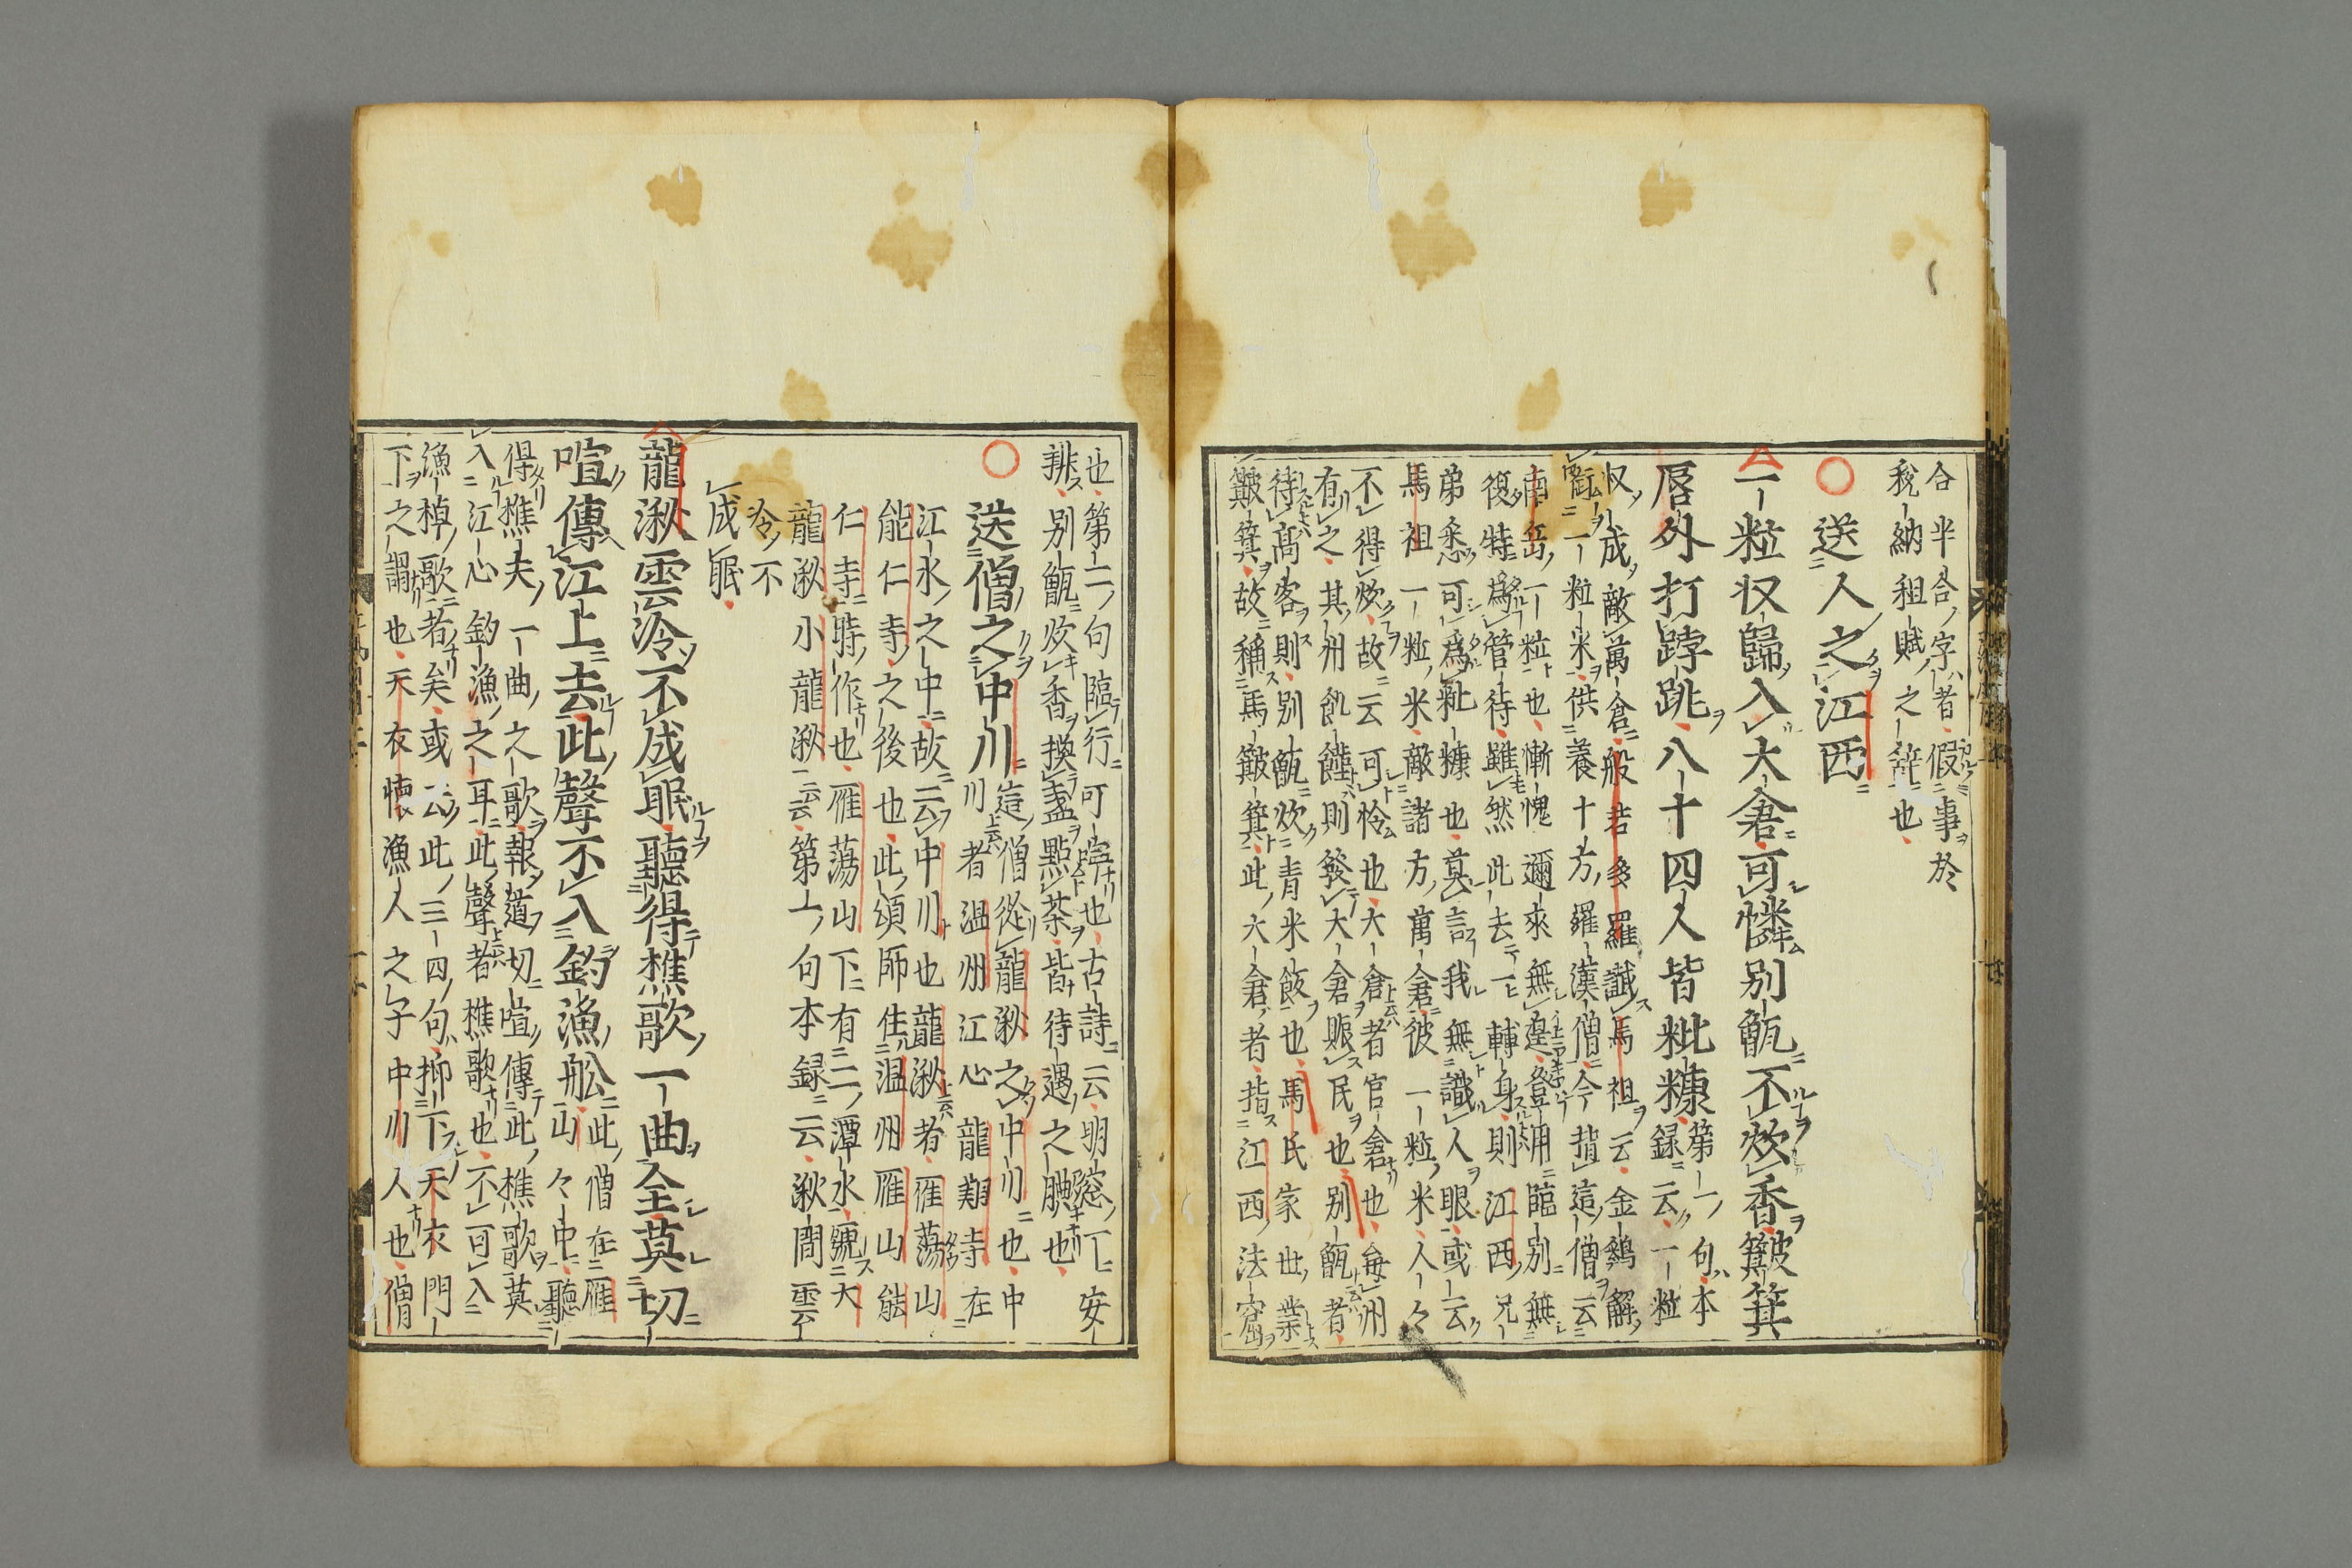 合半合字者假事於
税納租賦之辞也
送人之江西
一粒収歸入大倉可憐別甑不炊香簸箕
唇外打𨁝跳八十四人皆粃糠第一句本
録云一粒
収成敵萬倉般若多羅讖馬祖云金鷄解
銜一粒米供養十方羅漢僧今指這僧云
南岳一粒也慚愧邇來無
復特為管待雖然此去一轉身則江西兄
弟悉可為粃糠也莫言我無識人眼或云
馬祖一粒米敵諸方萬倉彼一粒米人々
不得炊故云可怜也大倉者官倉也毎州
有之其州飢饉則發大倉賑民也別甑者
待高客則別甑炊青米飯也馬氏家世業
簸箕故稱馬簸箕此大倉者指江西法窟
也第二句臨行可
也古詩云明窓下安
排別甑炊香換盞點茶皆待遇之腆也
送僧之中川
這僧從龍湫之中川也中
川者温州江心龍翔寺在
江水之中故云中川也龍湫者雁蕩山
能仁寺之後也此頌師住温州雁山能
仁寺時作也雁蕩山下有二潭水號大
龍湫小龍湫云云第一句本録云湫間雲
冷不
成眠
龍湫雲冷不成眠聽得樵歌一曲全莫切
喧傳江上去此聲不入釣漁舩此僧在雁
山々中聽
得樵夫一曲之歌報道切喧傳此樵歌莫
入江心釣漁之耳此聲者樵歌也不可入
漁棹歌者矣或云此三四句抑下天衣門
下之謂也天衣懐漁人之子中川人也僧